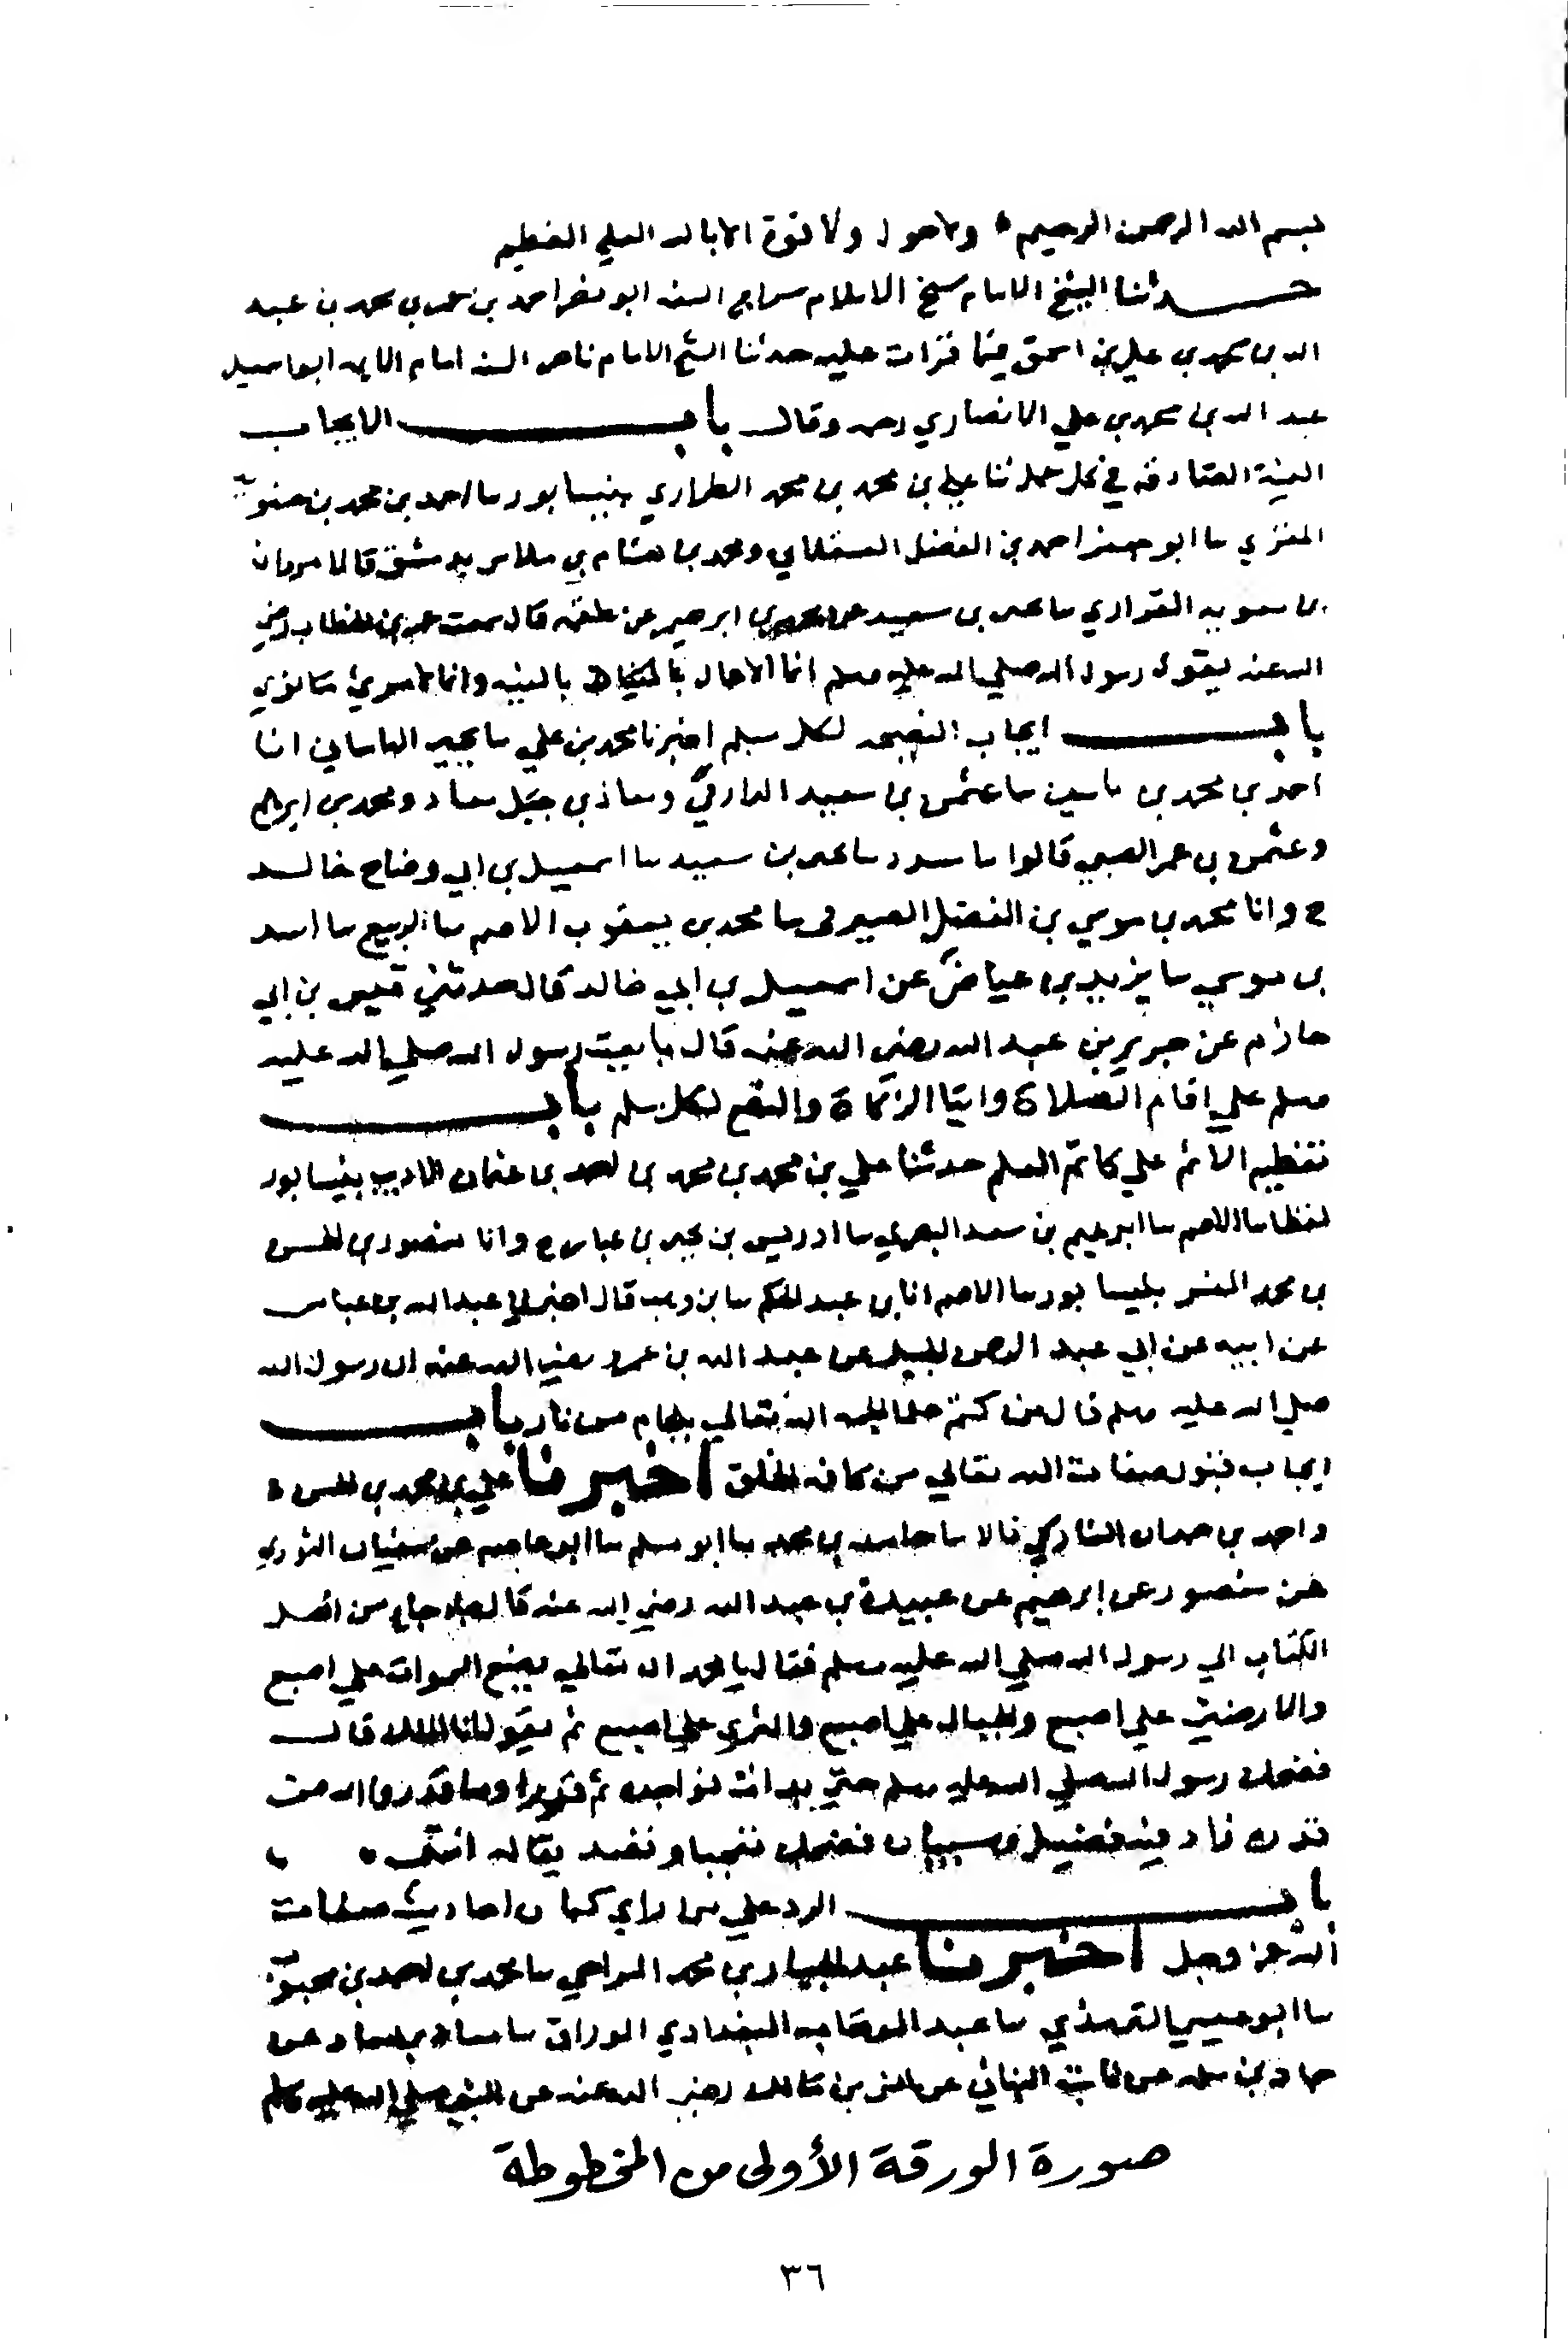 بسم الله الرحمن الرحيم ولا حول ولا قوة الا بالله العلي العظيم
حدثنا الشيخ الامام شيخ الاسلام سراج السنه ابو نصر احمد بن محمد بن عبد
الله بن محمد بن علي بن اسحق فيما قرات عليه حدثنا الشيخ الامام ناصر السنه امام الايمه ابو اسمعيل
عبد الله بن محمد بن علي الانصاري رحمه وقال باب الايجاب
النية الصادقه في كل عمل ثنا علي بن محمد بن محمد الطرازي بنيسابور ثنا احمد بن محمد بن حسنويه
المقري ثنا ابو جعفر احمد بن الفضل العسقلاني ومحمد بن هشام بن ملاس بدمشق قالا ثنا مروان
بن معويه الفزاري ثنا يحيى بن سعيد عن محمد بن ابرهيم عن علقمه قال سمعت عمر بن الخطاب رضي
الله عنه يقول رسول الله صلى الله عليه وسلم انما الاعمال بالنيه وانما لامرئ ما نوى
باب ايجاب النصيحه لكل مسلم اخبرنا محمد بن علي ثنا انا
احمد بن محمد بن ياسين ثنا عثمن بن سعيد الدارمي ومعاذ بن ومحمد بن ابرهيم
وعثمن بن عمر الضبي قالوا ثنا مسدد ثنا يحيى بن سعيد ثنا اسمعيل بن ابي خالد
ح وانا محمد بن موسي بن الفضل الصيرفي ثنا محمد بن يعقوب الاصم ثنا الربيع ثنا اسد
بن موسي ثنا يزيد بن عياض عن اسمعيل بن ابي خالد قال حدثني قيس بن ابي
حازم عن جرير بن عبد الله رضي الله عنه قال بايعت رسول الله صلي الله عليه
وسلم علي اقام الصلاة وايتا الزكاة والنصح لكل مسلم باب
تعظيم الاثم علي كاتم العلم حدثنا علي بن محمد بن محمد بن احمد بن عثمان الاديب بنيسابور
لفظا ثنا الاصم ثنا ابرهيم بن سعد البصري ثنا ادريس بن يحيى بن عباس ح وانا منصور بن الحسين
بن محمد المفسر بنيسابور ثنا الاصم انا ابن عبد الحكم ثنا ابن وهب قال اخبرني عبد الله بن عباس
عن ابيه عن ابي عبد الرحمن الحبلي عن عبد الله بن عمرو رضي الله عنه ان رسول الله
صلي الله عليه وسلم قال من كتم علما الجمه الله تعالي بلجام من نار باب
ايجاب قبول صفات الله تعالي من كافه الخلق اخبرنا علي بن محمد بن الحسن
واحمد بن حمدان الشاركي قالا ثنا حامد بن محمد ثنا ابو مسلم ثنا ابو عاصم عن سفيان الثوري
عن منصور عن ابرهيم عن عبيدة بن عبد الله رضي الله عنه قال جا من اهل
الكتاب الي رسول الله صلي الله عليه وسلم فقال يا محمد ان الله تعالي يضع السموات علي اصبع
والارضين علي اصبع والجبال علي اصبع والثري علي اصبع ثم يقول انا الملك قال
فضحك رسول الله صلي الله عليه وسلم حتي بدات نواجده ثم قرا وما قدروا الله حق
قدره زاد فيه فضيل وسيبان فضحك تعجبا وتصديقا له انتهى
باب الرد علي من راي كتمان احاديث صفات
الله عز وجل اخبرنا عبد الجبار بن محمد الجراحي ثنا محمد بن احمد بن محبوب
ثنا ابو عيسي الترمذي ثنا عبد الوهاب البغدادي الوراق ثنا معاذ بن معاد عن
حماد بن سلمه عن ثابت البناني عن انس بن مالك رضي الله عنه عن النبي صلي الله عليه وسلم
صورة الورقة الأولى من المخطوطة
٣٦